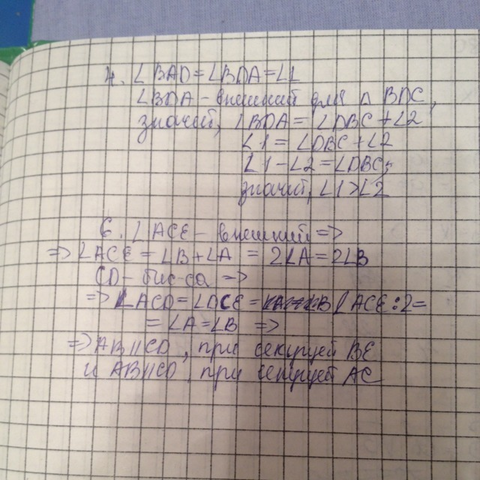 4. ∠BAD = ∠BDA = ∠1
∠BDA - внешний для △ BDC,
значит, ∠BDA = ∠DBC + ∠2
∠1 = ∠DBC + ∠2
∠1 - ∠2 = ∠DBC,
значит, ∠1 > ∠2
6. ∠ACE - внешний =>
=> ∠ACE = ∠B + ∠A = 2∠A = 2∠B
CD - бис-са =>
=> ∠ACD = ∠DCE = ∠ACE : 2 =
= ∠A = ∠B =>
=> AB || CD, при секущей BE
и AB || CD, при секущей AC